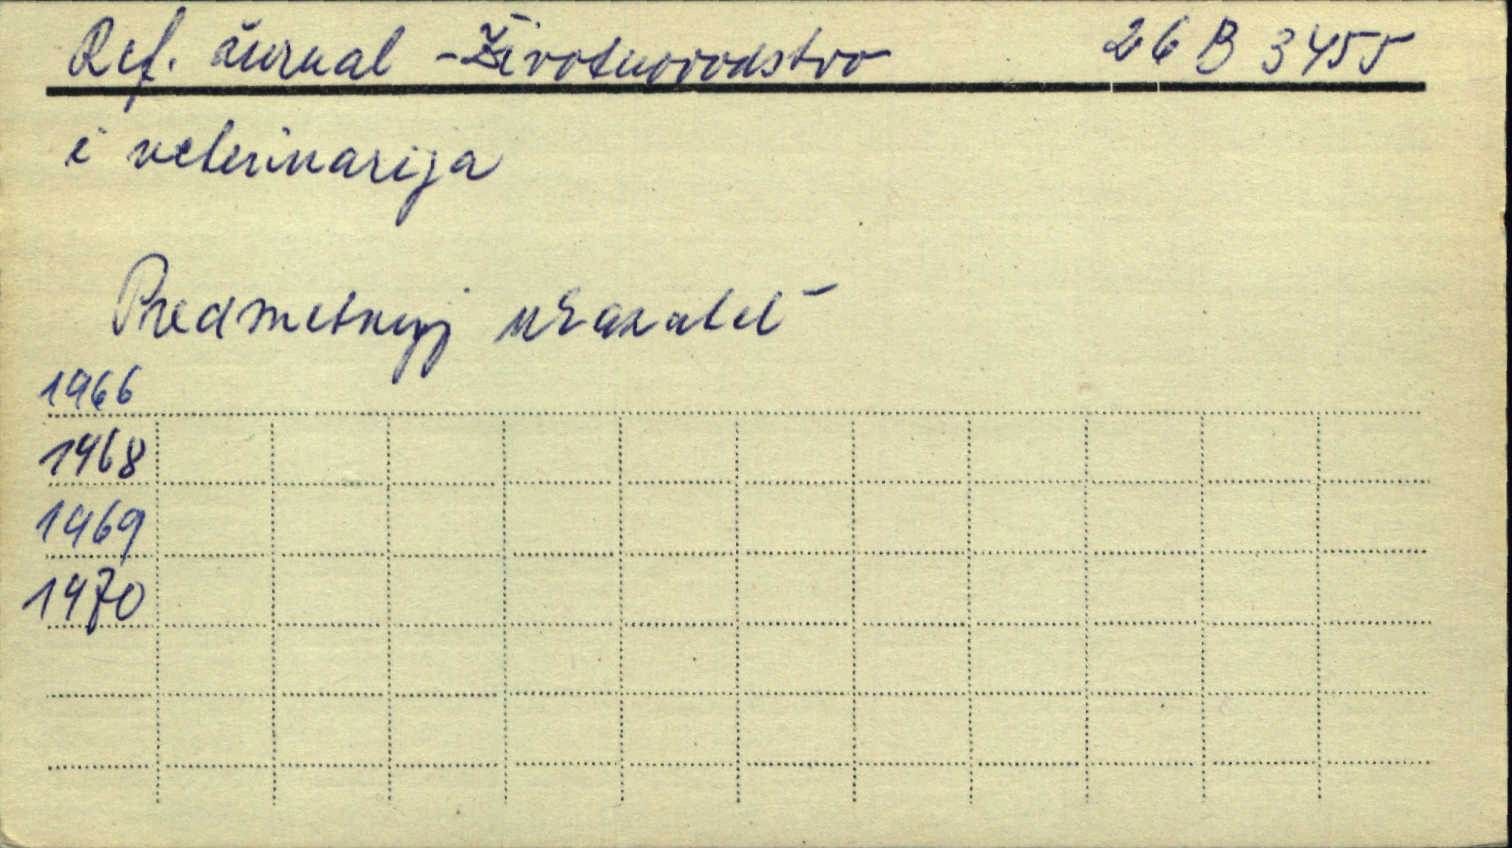 Ref. žurnal - Životnovodstvo 26 B 3455
i veterinarija
Predmetnyj ukazatel'
1966
1968
1969
1970